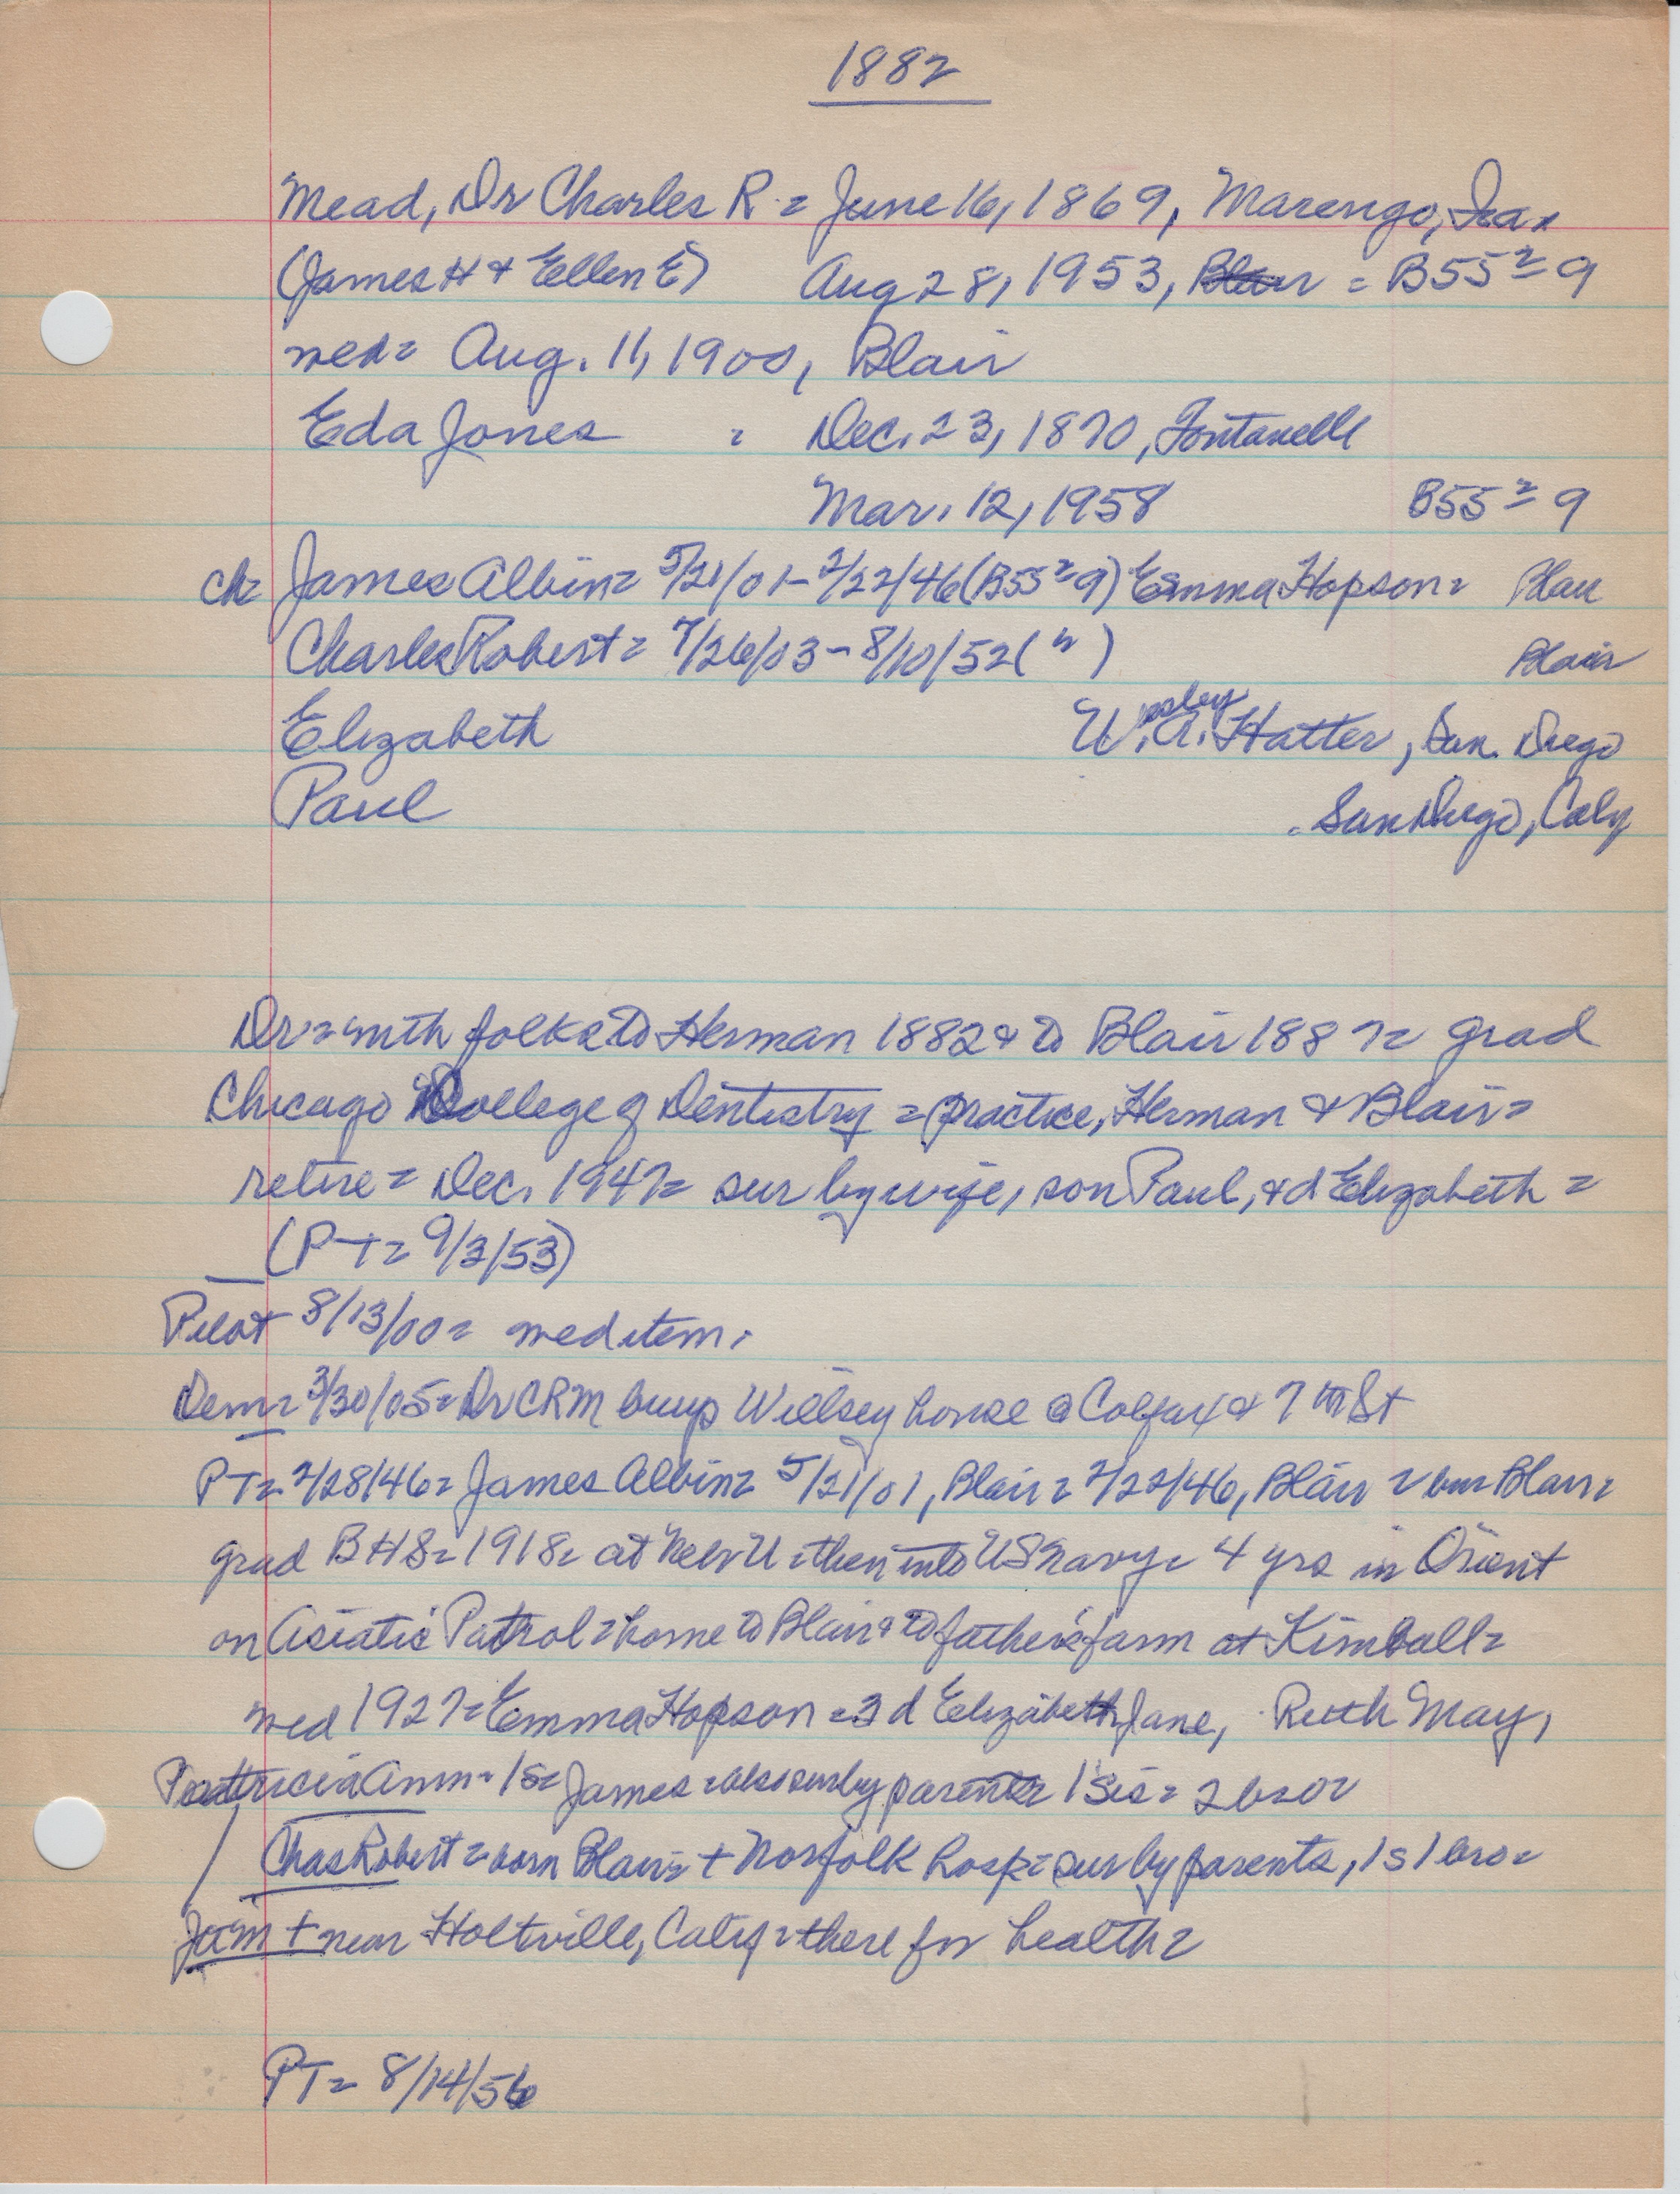 1882
Mead, Dr Charles R = June 16, 1869, Marengo, Ioa =
(James H & Ellen E) Aug 28, 1953, Blair = B55=9
wed = Aug. 11, 1900, Blair
Eda Jones = Dec. 23, 1870, Fontanelle
Mar. 12, 1958 B55=9
ch= James Albin = 5/21/01 - 2/22/46 (B55=9) Emma Hopson = Blair
Charles Robert = 7/26/03 - 8/10/52 ( " ) Blair
Elizabeth Wessley A. Hatter, San Diego
Paul San Diego, Calif
Dr = with folks to Herman 1882 & to Blair 1887 = grad
Chicago College of Dentistry = practice, Herman & Blair =
retire = Dec. 1947 = sur by wife, son Paul, & d Elizabeth =
(PT = 9/3/53)
Pilot 8/13/00 = wed item.
Dem = 3/30/05 = Dr CRM buys Willsey house @ Colfax & 7th St
PT = 2/28/46 = James Albin = 5/21/01, Blair = 2/22/46, Blair = bur Blair =
grad BHS = 1918 = at Neb U = then into US Navy = 4 yrs in Orient
on Asiatic Patrol = home to Blair & to father's farm at Kimball =
wed 1927 = Emma Hopson = 3 d Elizabeth Jane, Ruth May,
Patricia Ann = 1s = James = also sur by parents 1 sis = 2 bros
Chas Robert = born Blair = + Norfolk hosp = sur by parents, 1 s 1 bro =
Jim + near Holtville, Calif = there for health =
PT = 8/14/56